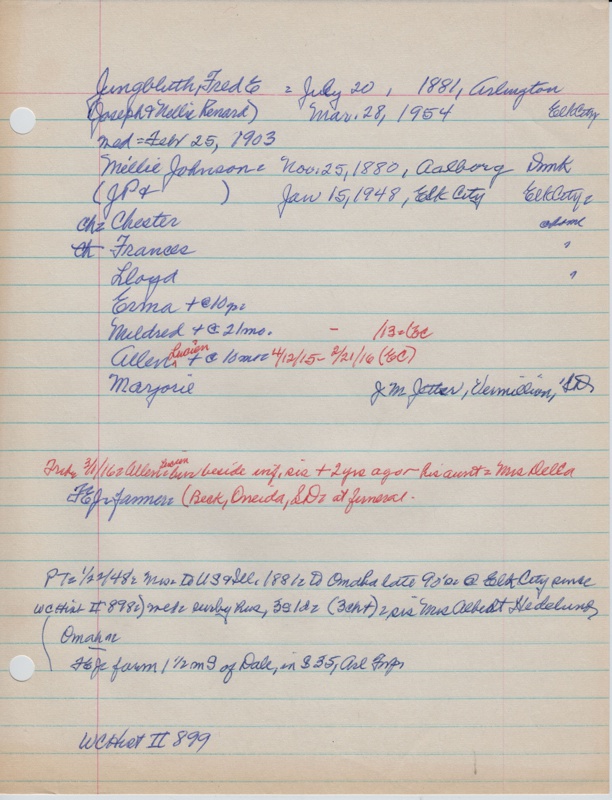 Jungbluth, Fred E = July 20, 1881, Arlington
(Joseph & Nellie Renard) Mar. 28, 1954 Elk City
med = Febr 25, 1903
Millie Johnson = Nov. 25, 1880, Aalborg Dmk
(JP & ) Jan 15, 1948, Elk City Elk City =
ch = Chester at home
ch Frances "
Lloyd "
Erma + @ 10 
Mildred + @ 21 mo. - /13 = (EC
Allen Lucien + @ 10 mo = 4/12/15 - 2/21/16 (EC)
Marjorie J. M. Jetter, Vermillion, SD
Trib = 3/1/16 = Allen Lucien = bur beside inf, sis + 2 yrs ago - his aunt = Mrs Della
FEJ = farmer = (Beck, Oneida, SD = at funeral.
PT = 1/22/48 = Mrs = To US @ Ill = 1881 = to Omaha late 90's = @ Elk City since
WC Hist II 898 =) = surby Hus, 3s 1d = (3ch+) = sis Mrs Albert Hedelund,
( Omaha =
FEJ = farm 1 1/2 m S of Dale, in S 35, Arl 
WC Hist II 899